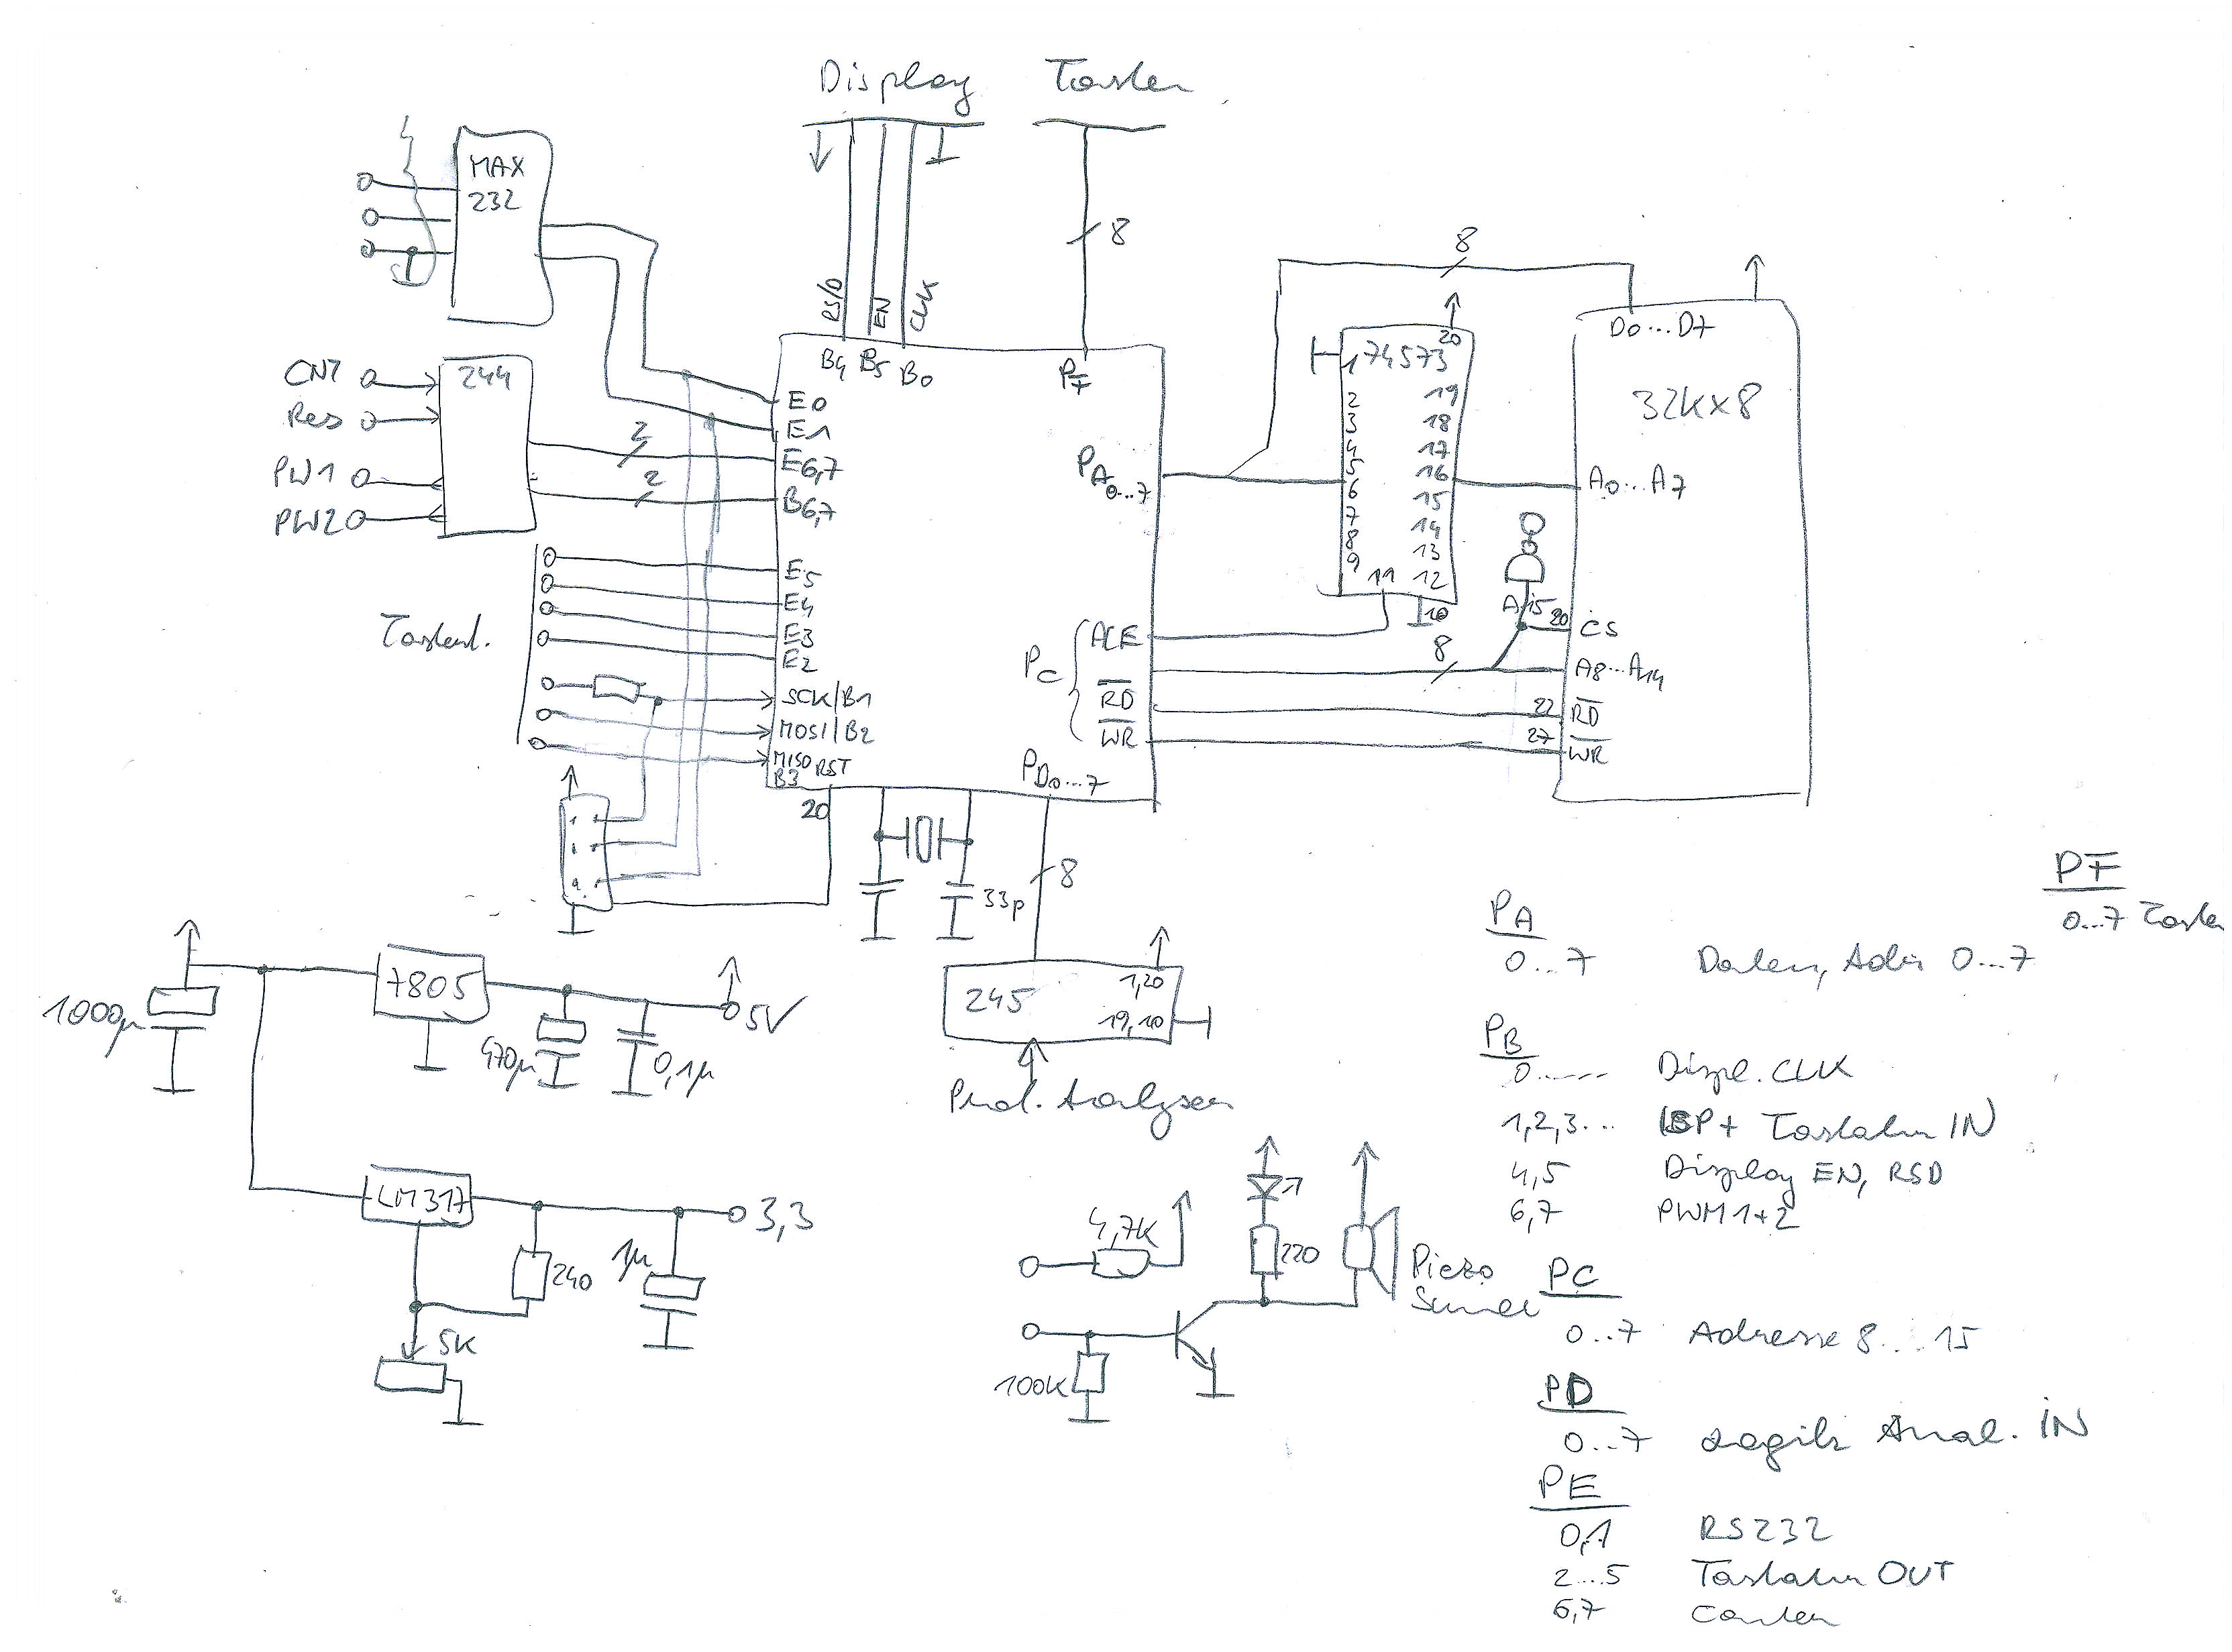 Display Tasten
MAX
232
8
RS/D
EN
CLK
8
D0...D7
20
1 74573
B4 B5 B0
PF
CNT
244
Res
E0
E1
2
E6,7
2
B6,7
PW1
PW2
PA0...7
2
3
4
5
6
7
8
9
11
19
18
17
16
15
14
13
12
10
32Kx8
A0...A7
E5
E4
E3
E2
Tastat.
A15
20
CS
PC
ALE
8
A8...A14
RD
22
RD
WR
27
WR
SCK/B1
MOSI/B2
MISO
B3
RST
PD0...7
20
33p
8
PF
0...7 Tasten
PA
0...7 Daten, Adr 0...7
7805
1000µ
470µ
0,1µ
5V
245
1,20
19,10
PB
0..... Displ. CLK
1,2,3... ISP + Tastatur IN
4,5 Display EN, RSD
6,7 PWM1+2
LM317
3,3
240
1µ
5K
4,7K
220
Piezo
100K
PC
0..7 Adresse 8....15
PD
0..7 Logik Anal. IN
PE
0,1 RS232
2...5 Tastatur OUT
6,7 Counter